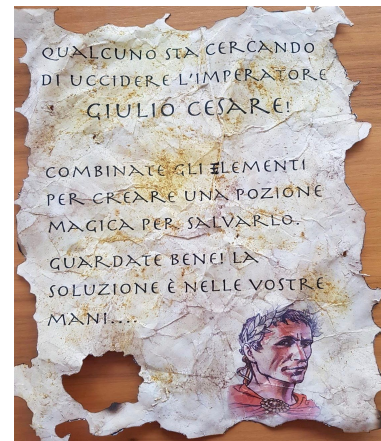 QUALCUNO STA CERCANDO
DI UCCIDERE L'IMPERATORE
GIULIO CESARE!
COMBINATE GLI ELEMENTI
PER CREARE UNA POZIONE
MAGICA PER SALVARLO.
GUARDATE BENE! LA
SOLUZIONE È NELLE VOSTRE
MANI....